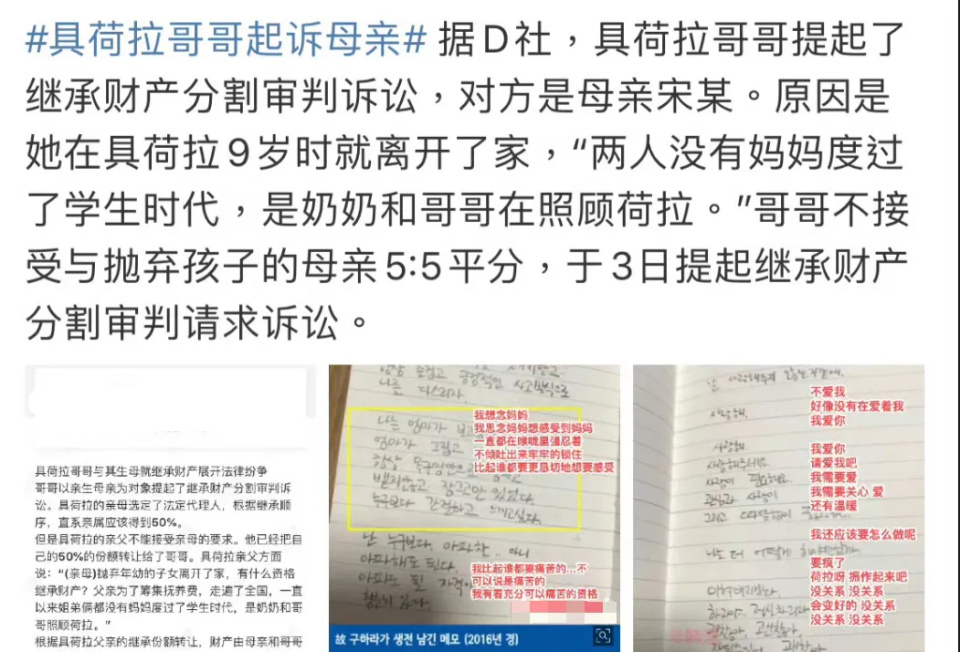 #具荷拉哥哥起诉母亲# 据D社，具荷拉哥哥提起了
继承财产分割审判诉讼，对方是母亲宋某。原因是
她在具荷拉9岁时就离开了家，“两人没有妈妈度过
了学生时代，是奶奶和哥哥在照顾荷拉。”哥哥不接
受与抛弃孩子的母亲5:5平分，于3日提起继承财产
分割审判请求诉讼。
具荷拉哥哥与其生母就继承财产展开法律纷争
哥哥以亲生母亲为对象提起了继承财产分割审判诉
讼。具荷拉的亲母选定了法定代理人，根据继承顺
序，直系亲属应该得到50%。
但是具荷拉的亲父不能接受亲母的要求。他已经把自
己的50%的份额转让给了哥哥。具荷拉亲父方面
说：“(亲母)抛弃年幼的子女离开了家，有什么资格
继承财产？父亲为了筹集抚养费，走遍了全国，一直
以来姐弟俩都没有妈妈度过了学生时代，是奶奶和哥
哥照顾荷拉。”
根据具荷拉父亲的继承份额转让，财产由母亲和哥哥
나를 다스리자.
나는 엄마가
엄마가 그립고
누구보다 간절하고 느끼고싶다.
난 누구보다. 아파한.. 아니
아파해도 된다.
아파도 될 자격이
我想念妈妈
我思念妈妈想感受到妈妈
一直都在喉咙里强忍着
不倾吐出来牢牢的锁住
比起谁都要更恳切地想要感受
我比起谁都要痛苦的...不
可以说是痛苦的
我有着充分可以痛苦的资格
故 구하라가 생전 남긴 메모 (2016년 경)
사랑해.
사랑해
사랑해주세요.
사랑이 필요해요.
관심과 사랑이
그리고
나도 더 어떻게
괜찮아
不爱我
好像没有在爱着我
我爱你
我爱你
请爱我吧
我需要爱
我需要关心 爱
还有温暖
我还应该要怎么做呢
要疯了
荷拉呀 振作起来吧
没关系 没关系
会变好的 没关系
没关系 没关系